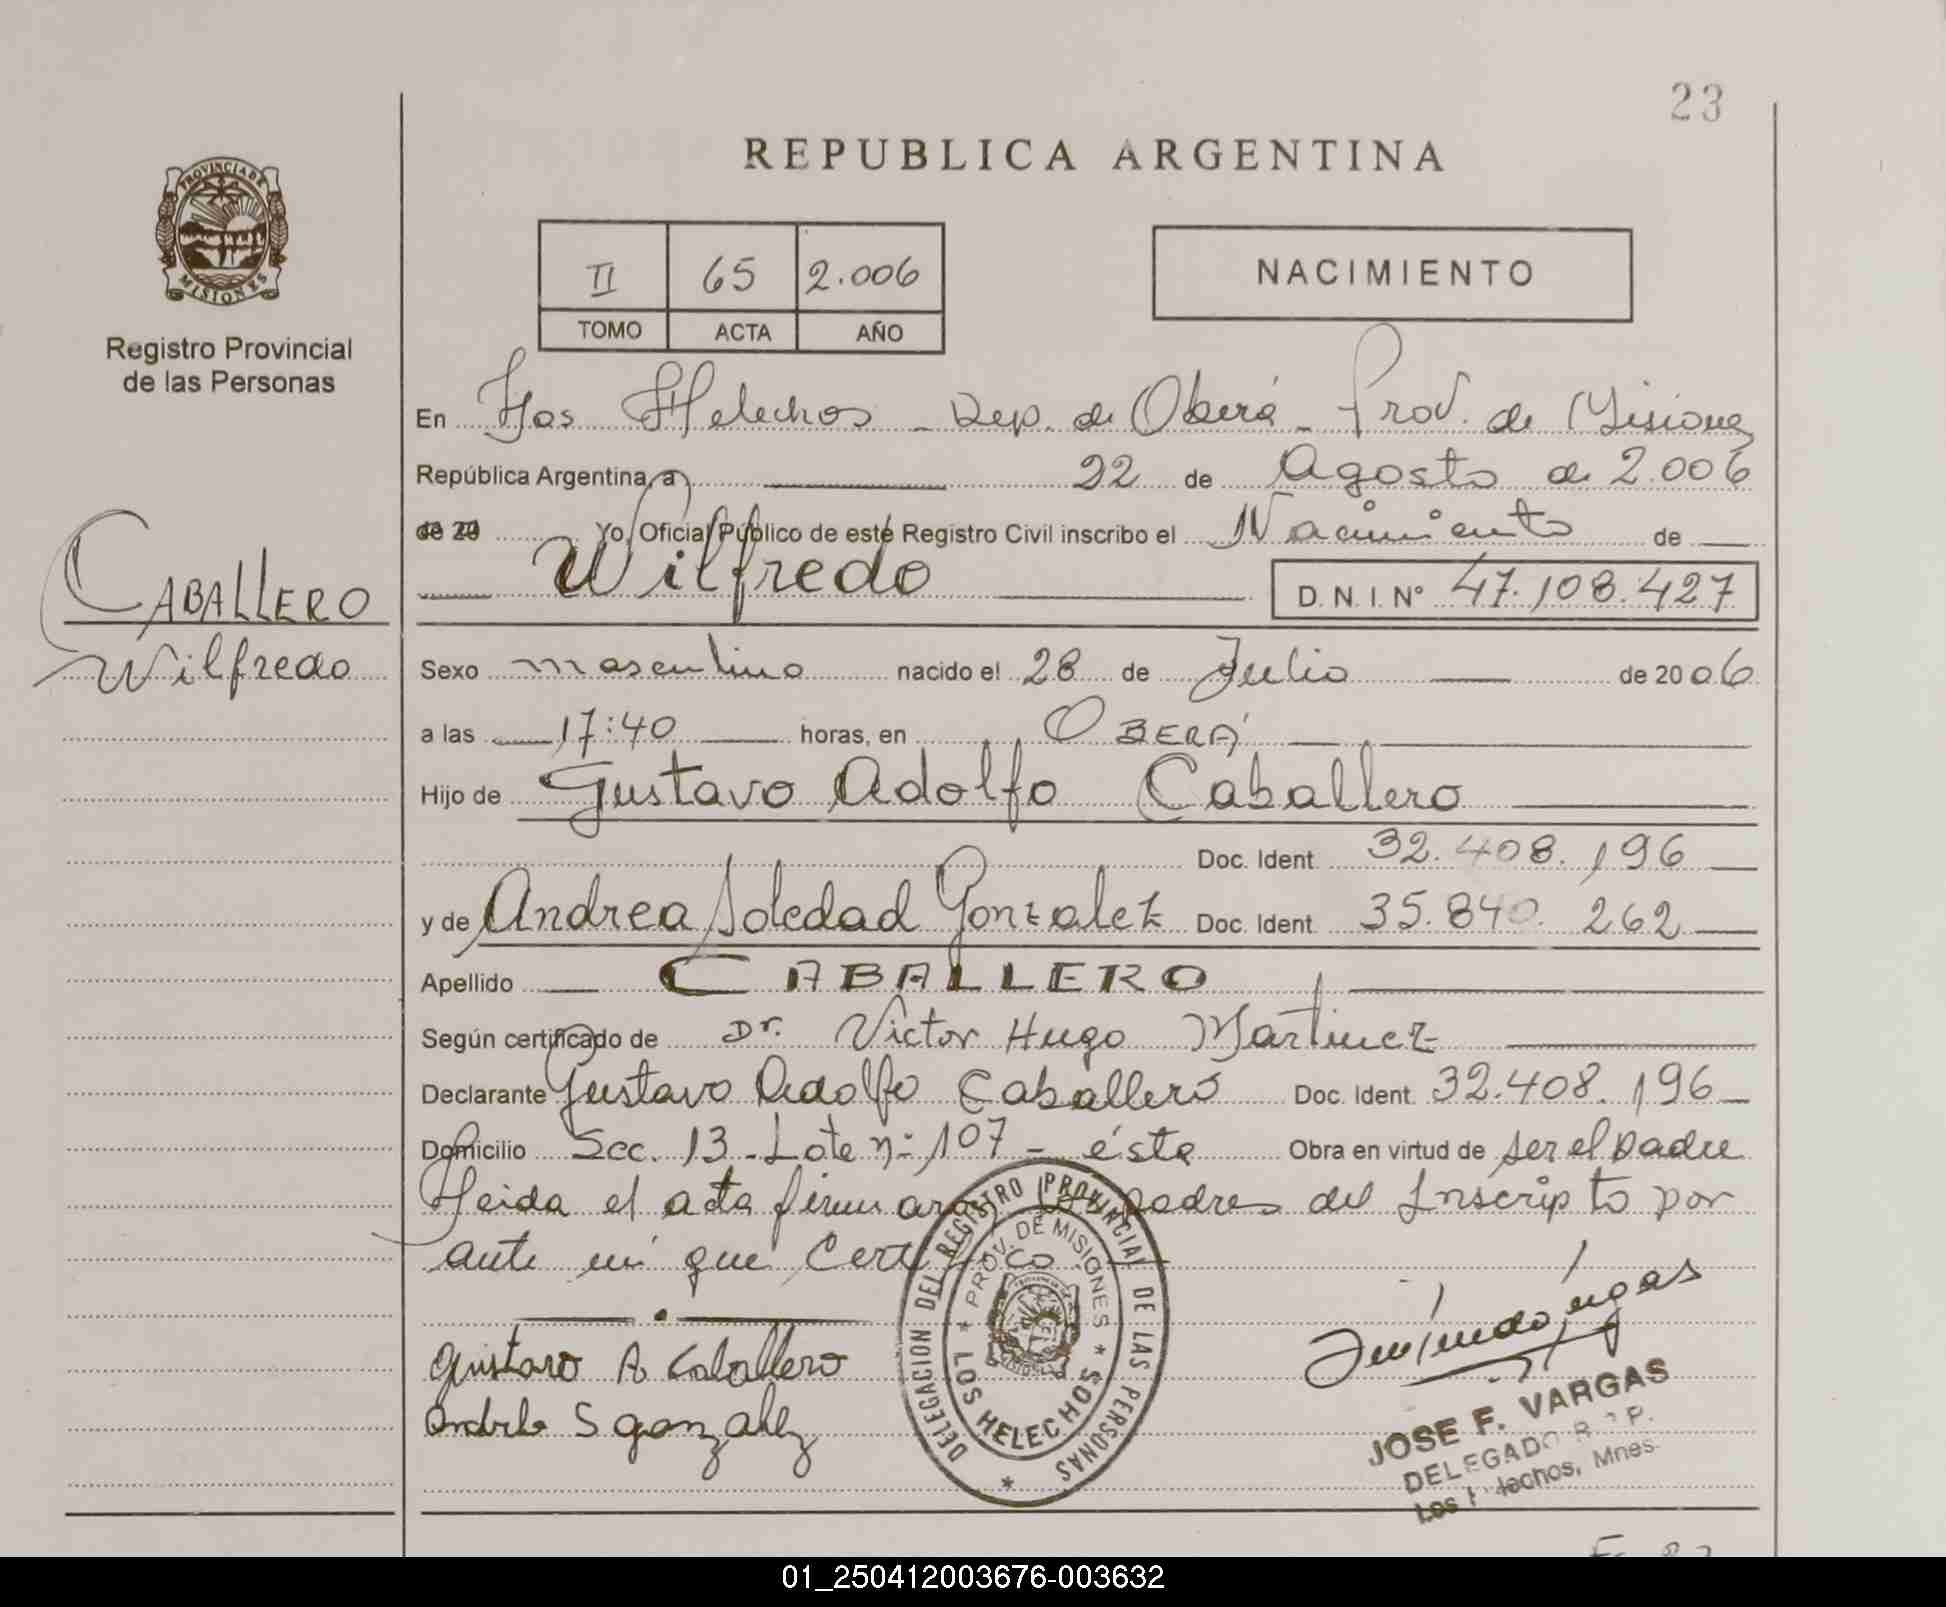 23
REPUBLICA ARGENTINA
PROVINCIA DE
MISIONES
Registro Provincial
de las Personas
II 65 2.006
TOMO ACTA AÑO
NACIMIENTO
En Los Helechos - Dep. de Oberá - Prov. de Misiones
República Argentina, a 22 de Agosto de 2.006
de 20 Yo, Oficial Público de este Registro Civil inscribo el Nacimiento de
Wilfredo D.N.I. Nº 47.108.427
CABALLERO
Wilfredo
Sexo masculino nacido el 28 de Julio de 2006
a las 17:40 horas, en OBERÁ
Hijo de Gustavo Adolfo Caballero
Doc. Ident. 32.408.196
y de Andrea Soledad Gonzalez Doc. Ident. 35.840.262
Apellido CABALLERO
Según certificado de Dr. Victor Hugo Martinez
Declarante Gustavo Adolfo Caballero Doc. Ident. 32.408.196
Domicilio Secc. 13 - Lote nº 107 - ésta Obra en virtud de ser el padre
Leida el acta firmaron los padres del Inscripto por
ante mi que Certifico
Gustavo A Caballero
Andrea S gonzalez
DELEGACION DEL REGISTRO PROVINCIAL DE LAS PERSONAS
* PROV. DE MISIONES *
LOS HELECHOS
JOSE F. VARGAS
DELEGADO R. P.
Los Helechos, Mnes.
01_250412003676-003632